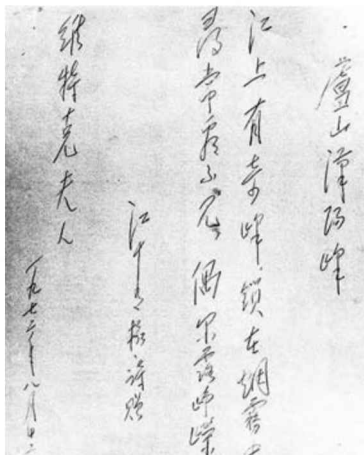 廬山漢阳峰
江上有奇峰 锁在烟雾
寻常看不见 偶尔露峥
江青摄诗赠
维特克夫人
一九七二年八月廿